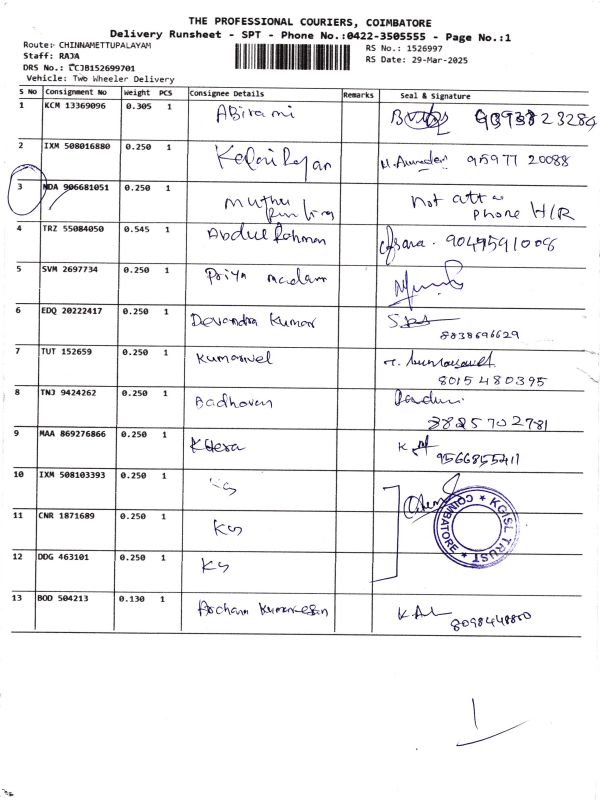 THE PROFESSIONAL COURIERS, COIMBATORE
Delivery Runsheet - SPT - Phone No.:0422-3505555 - Page No.:1
Route:- CHINNAMETTUPALAYAM
RS No.: 1526997
Staff: RAJA
RS Date: 29-Mar-2025
DRS No.: CCJB152699701
Vehicle: Two Wheeler Delivery
S No Consignment No Weight PCS Consignee Details Remarks Seal & Signature
1 KCM 13369096 0.305 1 Abirami
2 IXM 508016880 0.250 1 95977 20088
3 MDA 906681051 0.250 1 Muthu Not att
Phone H/R
4 TRZ 55084050 0.545 1 Abdul Rahman 9047591006
5 SVM 2697734 0.250 1 Priya madam
6 EDQ 20222417 0.250 1 Devandra Kumar
8838696629
7 TUT 152659 0.250 1 Kumaravel
8015480395
8 TNJ 9424262 0.250 1 Aadhavan
8825702781
9 MAA 869276866 0.250 1 K
9566855411
10 IXM 508103393 0.250 1 KG
11 CNR 1871689 0.250 1 KG
12 DDG 463101 0.250 1 KG
KGISL TRUST * COIMBATORE *
13 BOD 504213 0.130 1